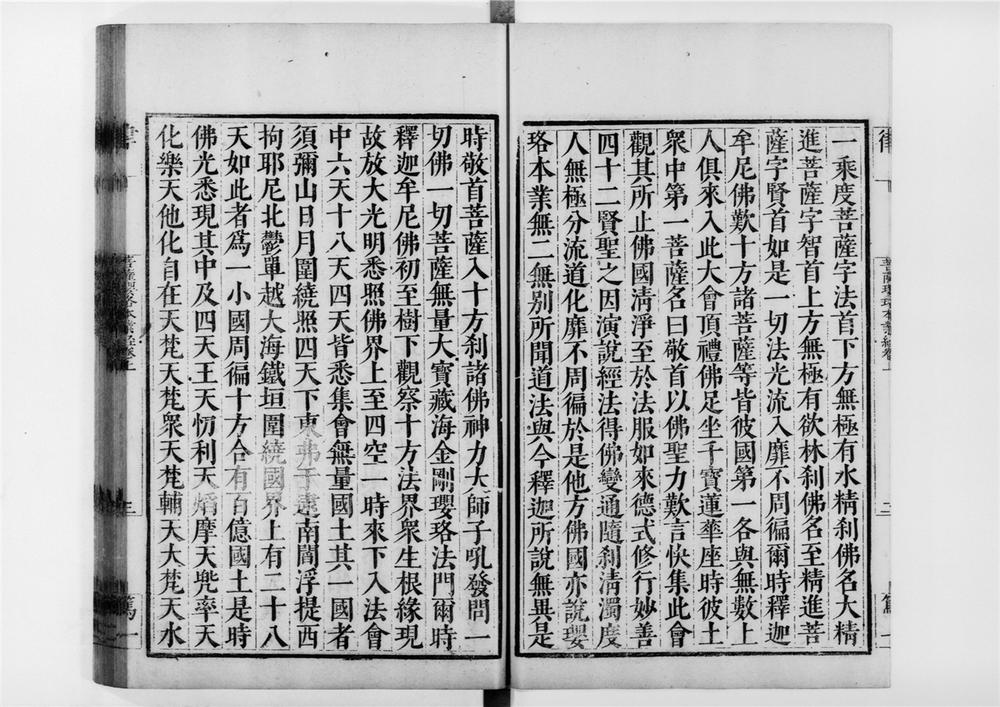 一乘度菩薩字法首下方無極有水精刹佛名大精
進菩薩字智首上方無極有欲林刹佛名至精進菩
薩字賢首如是一切法光流入靡不周徧爾時釋迦
牟尼佛歎十方諸菩薩等皆彼國第一各與無數上
人俱來入此大會頂禮佛足坐千寶蓮華座時彼土
衆中第一菩薩名曰敬首以佛聖力歎言快集此會
觀其所止佛國清淨至於法服如來德式修行妙善
四十二賢聖之因演說經法得佛變通隨刹清濁度
人無極分流道化靡不周徧於是他方佛國亦說瓔
珞本業無二無別所聞道法與今釋迦所說無異是
時敬首菩薩入十方刹諸佛神力大師子吼發問一
切佛一切菩薩無量大寶藏海金剛瓔珞法門爾時
釋迦牟尼佛初至樹下觀察十方法界衆生根緣現
故放大光明悉照佛界上至四空一時來下入法會
中六天十八天四天皆悉集會無量國土其一國者
須彌山日月圍繞照四天下東弗于逮南閻浮提西
拘耶尼北鬱單越大海鐵垣圍繞國界上有二十八
天如此者爲一小國周徧十方合有百億國土是時
佛光悉現其中及四天王天忉利天焰摩天兠率天
化樂天他化自在天梵天梵衆天梵輔天大梵天水
菩薩瓔珞本業經卷上
三
篤一